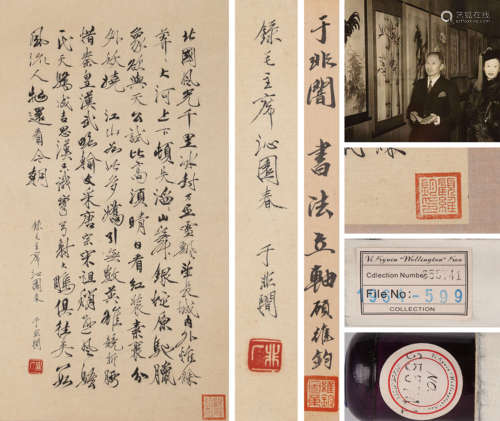 北國風光千里冰封萬里雪飄望長城內外惟餘
莽莽大河上下頓失滔滔山舞銀蛇原馳臘
象欲與天公試比高須晴日看紅裝素裹分
外妖嬈江山如此多嬌引無數英雄競折腰
惜秦皇漢武略輸文采唐宗宋祖稍遜風騷一
代天驕成吉思漢只識彎弓射大鵰俱往矣數
風流人物還看今朝
錄毛主席沁園春 于非闇
錄毛主席沁園春 于非闇
于非闇 書法立軸
"Wellington"
Collection Number
File No:
599
COLLECTION
No.